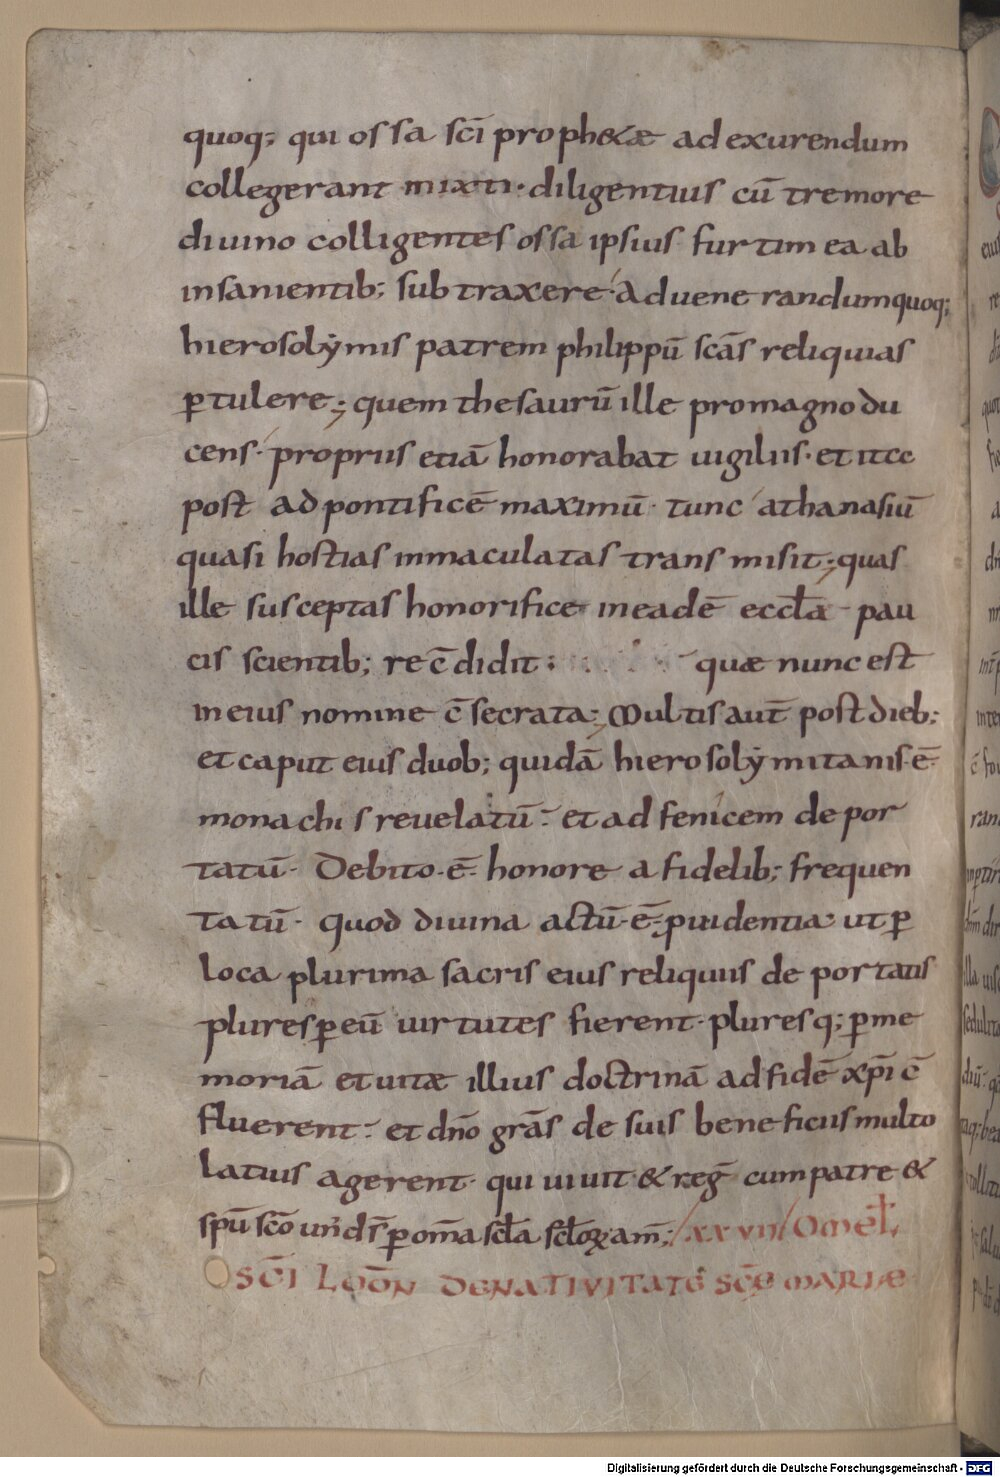 quoq; qui ossa scī prophetæ ad exurendum
collegerant mixti· diligentius cū tremore
diuino colligentes ossa ipsius furtim ea ab
insanientib; subtraxere· Aduenerandum quoq;
hierosolẏmis patrem philippū scās reliquias
ꝑtulere; quem thesaurū ille pro magno du
cens· propriis etiā honorabat uigiliis· et
post ad pontificē maximū· tunc athanasiū
quasi hostias inmaculatas transmisit; quas
ille susceptas honorifice in eadē eccła pau
cis scientib; rec̄didit· quæ nunc est
in eius nomine c̄secrata; Multis aut̄ post dieb;
et caput eius duob; quidā hierosolẏmitanis·ē·
monachis reuelatū· et ad fenicem depor
tatū· Debito·ē· honore a fidelib; frequen
tatū· quod diuina actū·ē· ꝓuidentia· ut ꝑ
loca plurima sacris eius reliquiis deportatis
plures ꝑ eū uirtutes fierent· pluresq; ꝑ me
moriā et uitæ illius doctrinā ad fidē xp̄i c̄
fluerent· et dn̄o grās de suis beneficiis multo
latius agerent· qui uiuit & reḡ cum patre &
spū scō un̄ d̄s ꝑ om̄a scła scłoꝝ am̄; XXVII Omeł
SC̄I IOO̅N DE NATIVITATE SC̄E MARIE
Digitalisierung gefördert durch die Deutsche Forschungsgemeinschaft - DFG